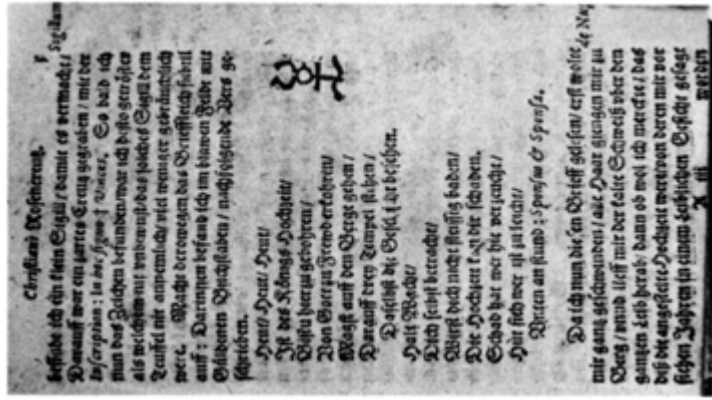 Christiani Rosencreutz. 5
besihe ich ein klein Sigill/ damit es vermacht/ Sigillum
Darauff war ein zartes Creutz gegraben/ mit der
Inscription: In hoc signo † vinces. So bald ich
nun das Zeichen befunden/ war ich desto getröster
als welchem nit unbewust/ das solches Sigill dem
Teuffel nit annemlich/ viel weniger gebräuchlich
were. Mache derowegen das Briefflein subtil
auff: Darinnen befand ich im blawen Felde mit
Güldenen Buchstaben/ nachfolgende Vers ge-
schrieben.
Heut/ Heut/ Heut/
Ist des Königs Hochzeit/
Bistu hierzu gebohren/
Von Gott zu Frewd erkohren/
Magst auff den Berge gehen/
Darauff drey Tempel stehen/
Daselbst die Geschicht besehen.
Halt Wacht/
Dich selbst betracht/
Wirst dich nicht fleissig baden/
Die Hochzeit kan dir schaden.
Schad hat wer hie verzeucht/
Hüt sich wer ist zu leicht/
Unten an stund: Sponsus & Sponsa.
Da ich nun diesen Brieff gelesen/ erst wolte
mir gantz geschwinden/ alle Haar giengen mir zu
Berg/ unnd lieff mir der kalte Schweiß uber den
gantzen Leib herab/ dann ob wol ich merckte/ das
diß die angestelte Hochzeit were/ von deren mir vor
sieben Jahren in einem Leiblichen Gesichte gesagt
A iii worden